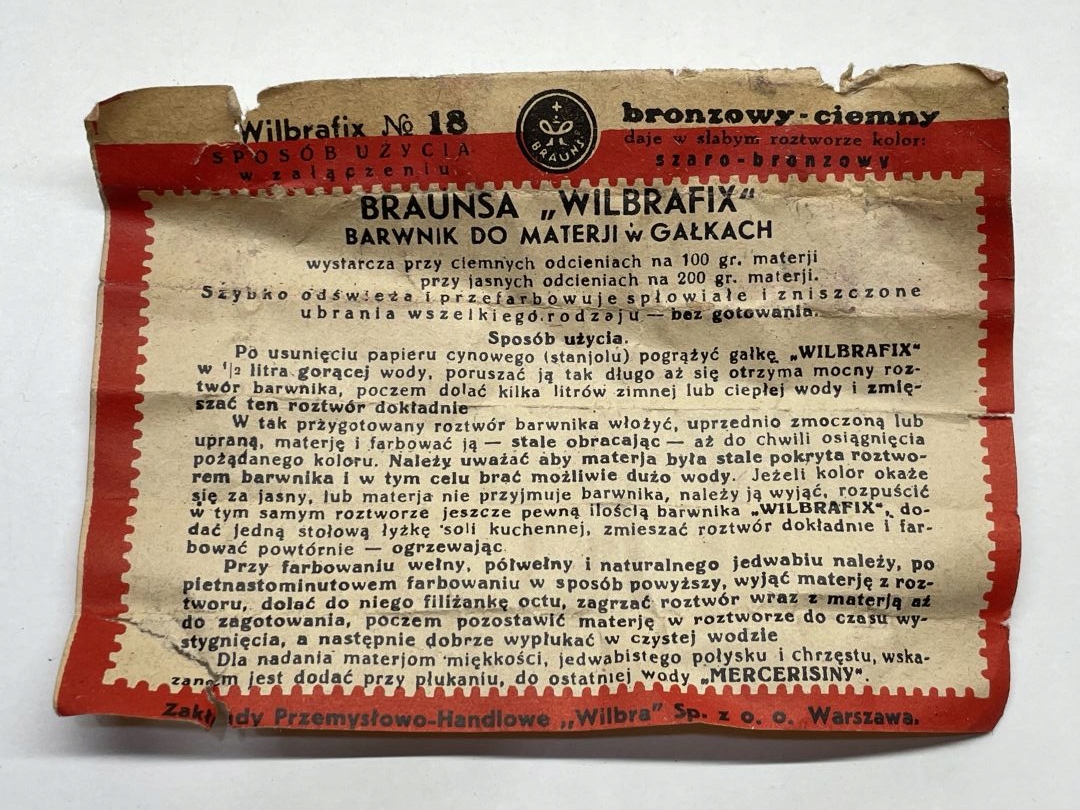 Wilbrafix № 18
SPOSÓB UŻYCIA
w załączeniu
BRAUNS
bronzowy-ciemny
daje w słabym roztworze kolor:
szaro-bronzowy
BRAUNSA „WILBRAFIX"
BARWNIK DO MATERJI w GAŁKACH
wystarcza przy ciemnych odcieniach na 100 gr. materji
przy jasnych odcieniach na 200 gr. materji.
Szybko odświeża i przefarbowuje spłowiałe i zniszczone
ubrania wszelkiego rodzaju — bez gotowania.
Sposób użycia.
Po usunięciu papieru cynowego (stanjolu) pogrążyć gałkę „WILBRAFIX"
w 1/2 litra gorącej wody, poruszać ją tak długo aż się otrzyma mocny roz-
twór barwnika, poczem dolać kilka litrów zimnej lub ciepłej wody i zmię-
szać ten roztwór dokładnie
W tak przygotowany roztwór barwnika włożyć, uprzednio zmoczoną lub
upraną, materję i farbować ją — stale obracając — aż do chwili osiągnięcia
pożądanego koloru. Należy uważać aby materja była stale pokryta roztwo-
rem barwnika i w tym celu brać możliwie dużo wody. Jeżeli kolor okaże
się za jasny, lub materja nie przyjmuje barwnika, należy ją wyjąć, rozpuścić
w tym samym roztworze jeszcze pewną ilością barwnika „WILBRAFIX", do-
dać jedną stołową łyżkę soli kuchennej, zmieszać roztwór dokładnie i far-
bować powtórnie — ogrzewając.
Przy farbowaniu wełny, półwełny i naturalnego jedwabiu należy, po
pietnastominutowem farbowaniu w sposób powyższy, wyjąć materję z roz-
tworu, dolać do niego filiżankę octu, zagrzać roztwór wraz z materją aż
do zagotowania, poczem pozostawić materję w roztworze do czasu wy-
stygnięcia, a następnie dobrze wypłukać w czystej wodzie
Dla nadania materjom miękkości, jedwabistego połysku i chrzęstu, wska-
zanem jest dodać przy płukaniu, do ostatniej wody „MERCERISINY".
Zakłady Przemysłowo-Handlowe „Wilbra" Sp. z o. o. Warszawa.